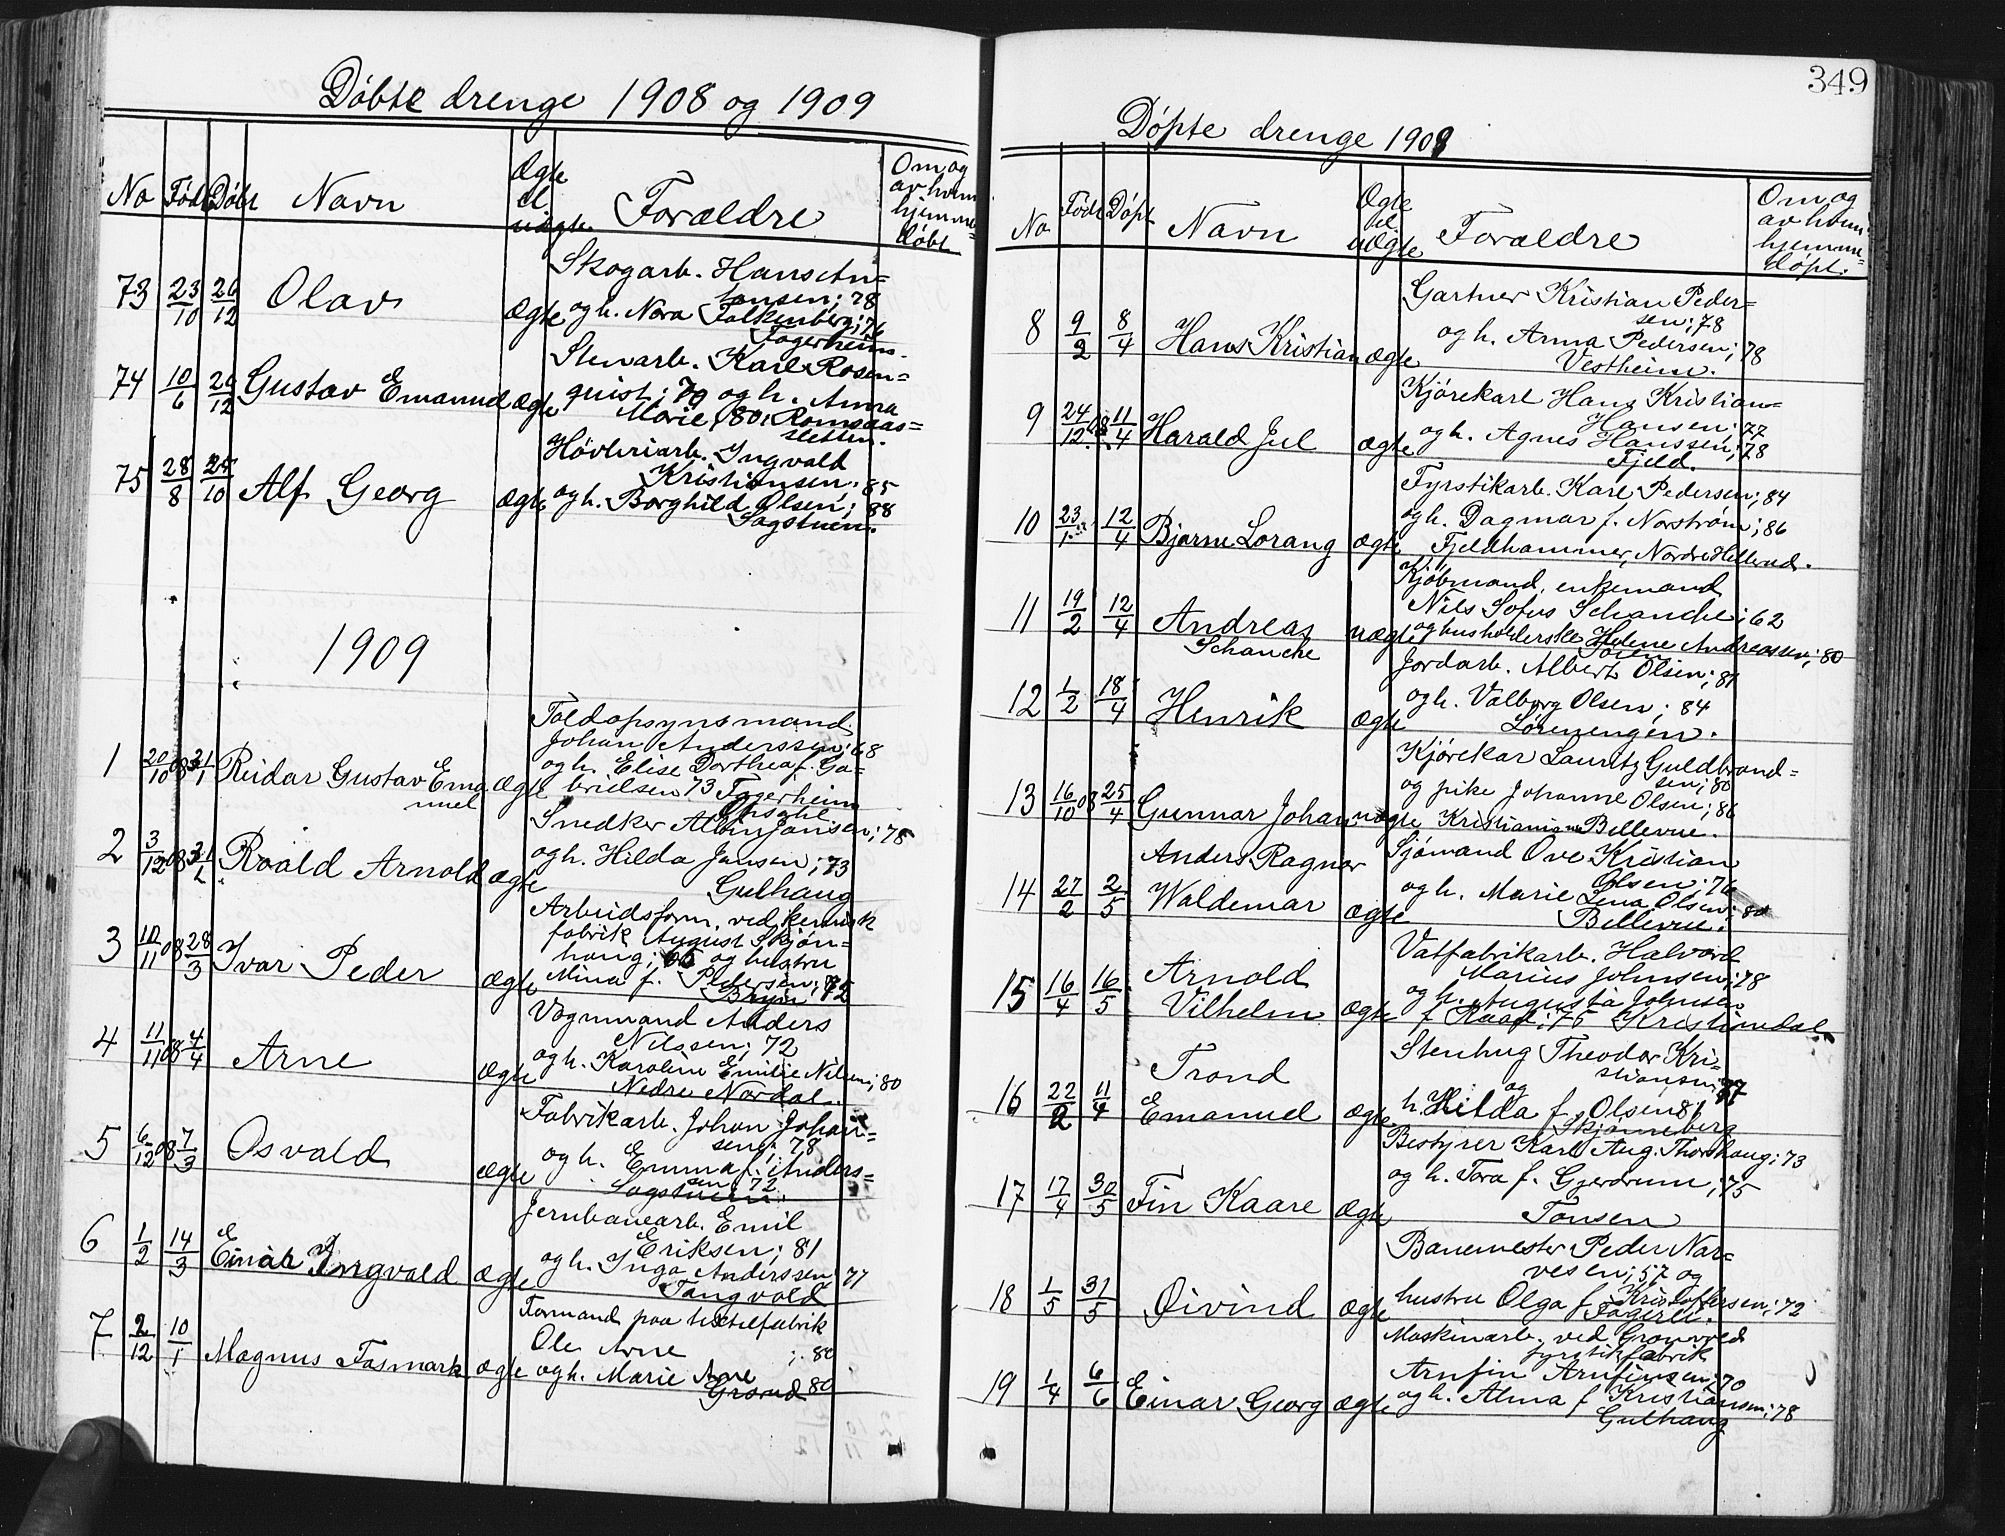 Døbte drenge 1908 og 1909
No Født Døbt Navn Ægte el uægte Forældre Om og av hvem hjemmedøbt
73 23/10 26/12 Olav Ægte
Skogarb. Hans An=
tonsen; 78
og h. Nora Falkenberg; 76
Fagerheim.
74 10/6 26/12 Gustav Emanuel Ægte
Stenarb. Karl Rosen=
quist; 79 og h. Anna
Marie, 80, Romsaas=
sletten.
75 28/8 25/10 Alf Georg Ægte
Høvleriarb. Ingvald
Kristiansen, 85
og h. Borghild Olsen; 88
Sagstuen.
1909
1 20/10 08 31/1 Reidar Gustav Emanuel Ægte
Toldopsynsmand
Johan Anderssen; 68
og h. Elise Dorthea f. Ga=
brielsen 73 Fagerheim
Opsahl
2 3/12 08 31/1 Roald Arnold Ægte
Snedker Albin Jansen; 75
og h. Hilda Jansen; 73
Gulhaug
3 10/11 08 28/3 Ivar Peder Ægte
Arbeidsform. ved kemisk
fabrik August Skjøn=
haug; 65 og hustru
Mina f. Pedersen; 75
Bryn
4 11/11 08 4/4 Arne Ægte
Vognmand Anders
Nilssen; 72
og h. Karoline Emilie Nilsen; 80
Nedre Nordal.
5 6/12 08 7/3 Osvald Ægte
Fabrikarb. Johan Johan=
sen; 78
og h. Emma f. Anders=
sen; 72
Sagstuen.
6 1/2 14/3 Einar Ingvald Ægte
Jernbanearb. Emil
Eriksen; 81
og h. Inga Anderssen 77
Tangvold
7 2/12 10/1 Magnus Tasmark Ægte
Formand paa textilfabrik
Ole Arne ; 80
og h. Marie Arne 80
Grorud
349
Døpte drenge 1909
No Født Døpt Navn Ægte el uægte Forældre Om og av hvem hjemmedøpt.
8 9/2 8/4 Hans Kristian Ægte
Gartner Kristian Peder=
sen; 78
og h. Anna Pedersen; 78
Vestheim.
9 24/12 08 11/4 Harald Jul Ægte
Kjørekarl Hans Kristian=
Hansen; 77
og h. Agnes Hanssen; 78
Fjeld.
10 23/1 12/4 Bjarne Lorang Ægte
Fyrstikarb. Karl Pedersen; 84
og h. Dagmar f. Norstrøm; 86
Fjeldhammer, Nordre Hellerud.
11 19/2 12/4 Andreas Schanche uægte
Kjøbmand, enkemand
Nils Sofus Schanche; 62
og husholderske Helene Andreassen; 80
12 1/2 18/4 Henrik Ægte
Jordarb. Albert Olsen; 81
og h. Valborg Olsen; 84
Lørenengen.
13 16/10 08 25/4 Gunnar Johan uægte
Kjørekar Lauritz Guldbrand=
sen; 80
og pike Johanne Olsen; 86
Kristiania Bellevue.
14 27/2 2/5 Anders Ragnar Waldemar Ægte
Sjømand Ove Kristian
Olsen; 76
og h. Marie Lena Olsen; 80
Bellevue.
15 16/4 16/5 Arnold Vilhelm Ægte
Vatfabrikarb. Halvord
Marius Johnsen; 78
og h. Augusta Johnsen
f. Raad; 75 Kristiandal
16 22/2 11/4 Trond Emanuel Ægte
Stenhug Theodor Kri=
stiansen; 77
og
h. Hilda f. Olsen 81
Skjønneberg
17 17/4 30/5 Fin Kaare Ægte
Bestyrer Karl Aug. Thorshaug; 73
og h. Tora f. Gjerdrum; 75
Tonsen
18 1/5 31/5 Øivind Ægte
Banemester Peder Nar=
vesen; 57 og
hustru Olga f. Kristoffersen; 72
Fagerli.
19 1/4 6/6 Einar Georg Ægte
Maskinarb. ved Grønvold
fyrstikfabrik
Arnfin Arnfinsen; 70
og h. Alma f. Kristiansen; 78
Gulhaug